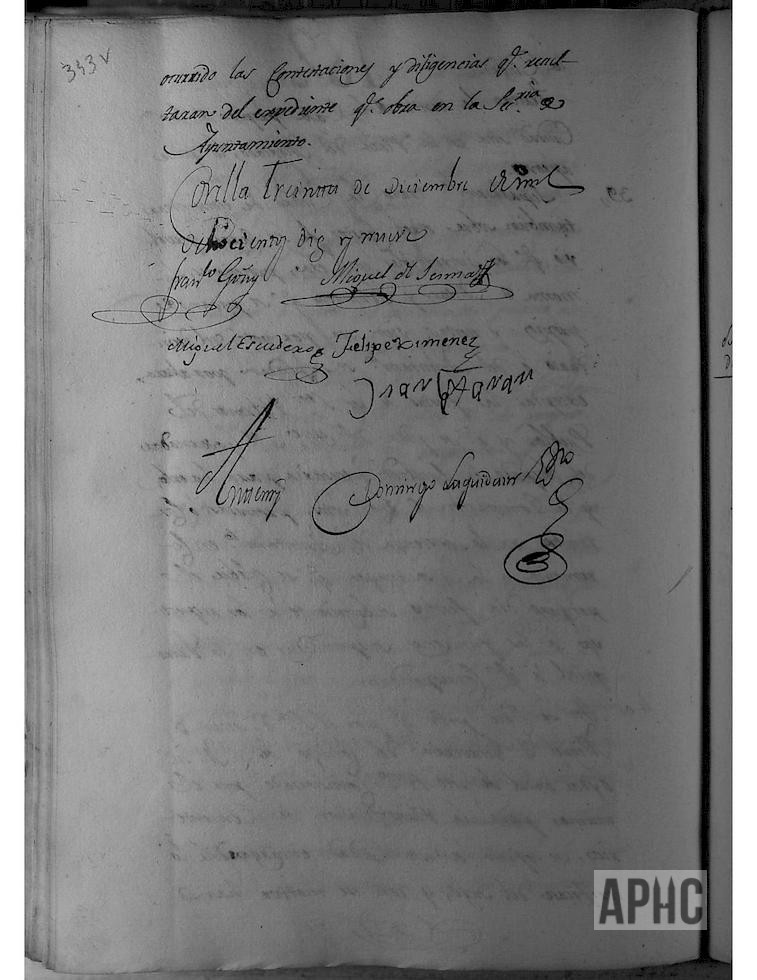 343 v
ocurrido las Contestaciones y diligencias q.e resul-
taran del expediente q.e obra en la Sec.ria de
Ayuntamiento.
Corella Treinta de Diciembre de mil
ochocientos diez y nueve
Fran.co Goñy Miguel de Sesma
Miguel Escudero Felipe Ximenez
Juan
Ante mi
Domingo Laguidain Ess.no
APHC